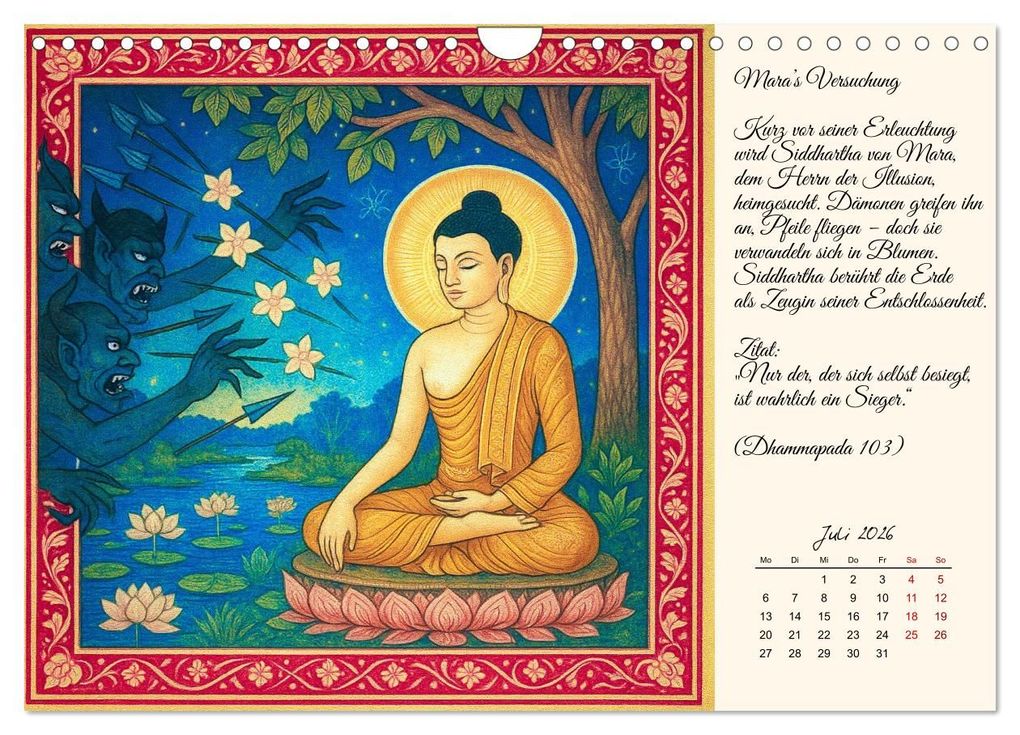 Mara's Versuchung
Kurz vor seiner Erleuchtung
wird Siddhartha von Mara,
dem Herrn der Illusion,
heimgesucht. Dämonen greifen ihn
an, Pfeile fliegen – doch sie
verwandeln sich in Blumen.
Siddhartha berührt die Erde
als Zeugin seiner Entschlossenheit.
Zitat:
„Nur der, der sich selbst besiegt,
ist wahrlich ein Sieger."
(Dhammapada 103)
Juli 2026
Mo Di Mi Do Fr Sa So
1 2 3 4 5
6 7 8 9 10 11 12
13 14 15 16 17 18 19
20 21 22 23 24 25 26
27 28 29 30 31